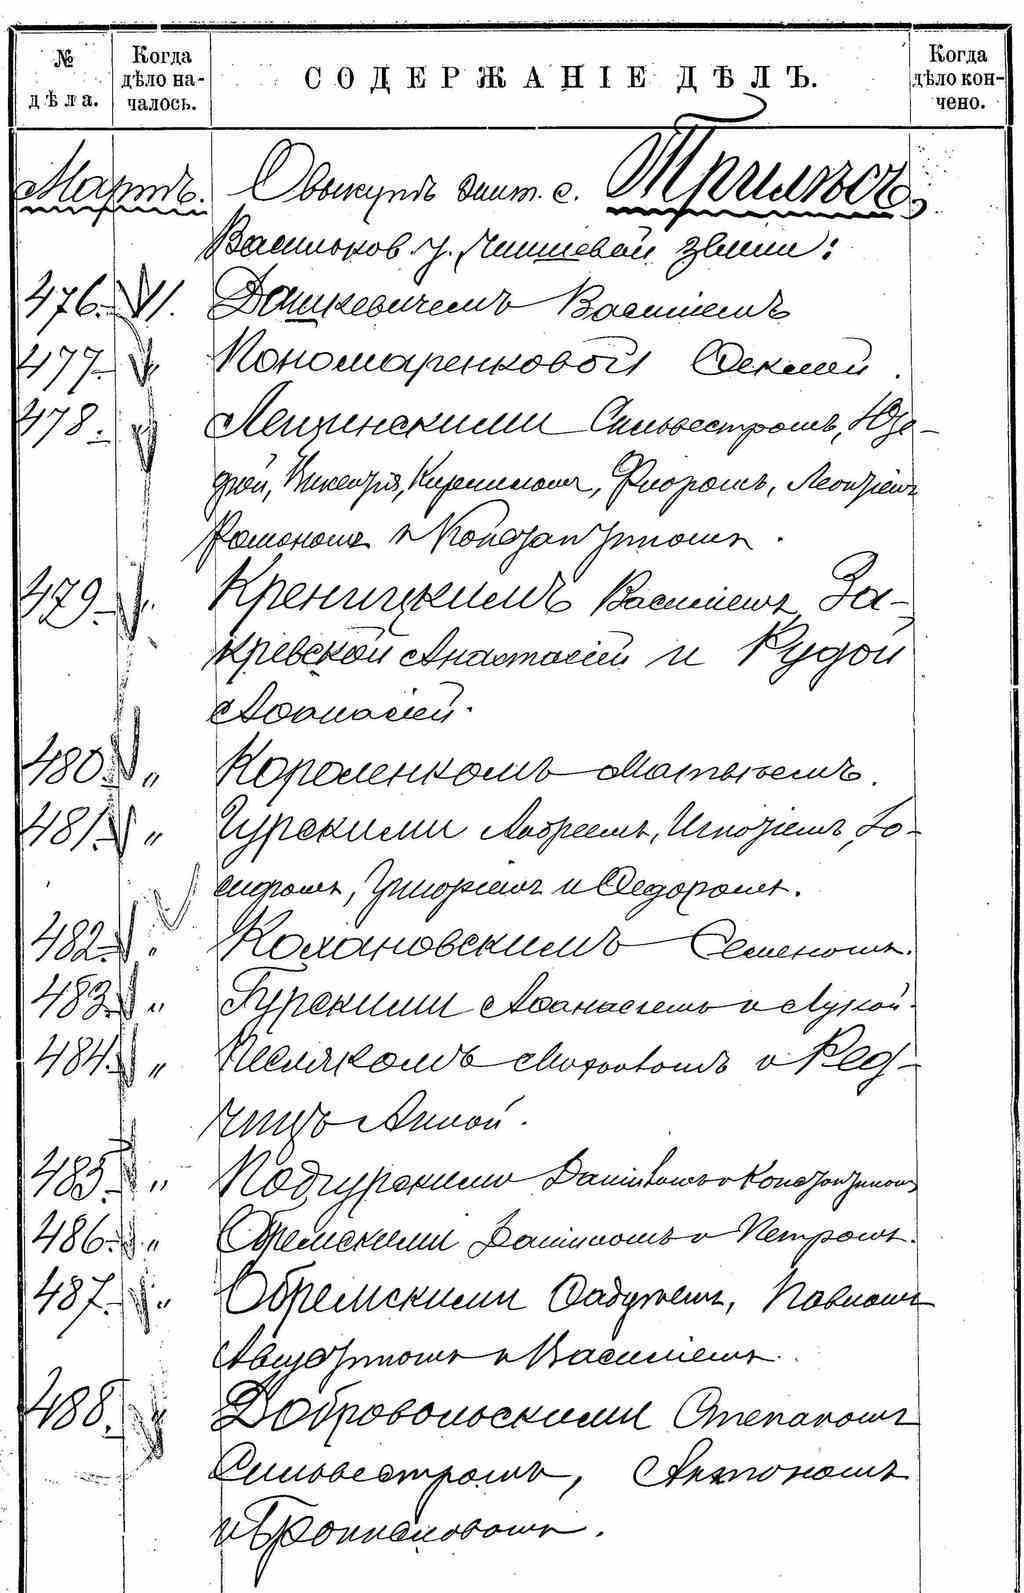 № дѣла.
Когда дѣло началось.
СОДЕРЖАНІЕ ДѢЛЪ.
Когда дѣло кончено.
Мартъ. О выкупѣ жит. с. Трилѣсъ,
Васильков. у. чиншевой земли:
476. VI. Дашкевичемъ Василіемъ
477. Пономаренковой Ѳеклой
478. Лещинскими Сильвестромъ, Юзе-
фой, Викентія, Кириломъ, Флоромъ, Леонтіемъ
Романомъ и Константиномъ.
479. Креницкимъ Василіемъ За-
кревской Анастасіей и Рудой
Аѳанасіей.
480. " Короленкомъ Матвѣемъ.
481. " Гурскими Андреемъ, Игнатіемъ, Іо-
сифомъ, Григоріемъ и Ѳедоромъ.
482. " Колановскимъ Семеномъ.
483. " Гурскими Аѳанасіемъ и Лукой.
484. " и Ред-
чицъ Анной.
485. " Подгурскими Даниломъ и Константиномъ
486. " Обремскими Даниломъ и Петромъ.
487. " Обремскими Фадѣемъ, Павломъ
Августиномъ и Василіемъ.
488. Добровольскими Степаномъ
Сильвестромъ, Антономъ
и Брониславомъ.